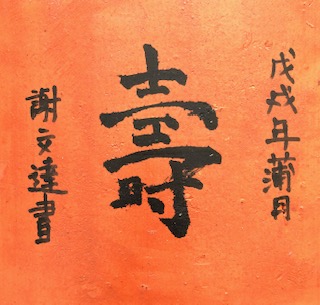 戊戌年蒲月
壽
謝文達書